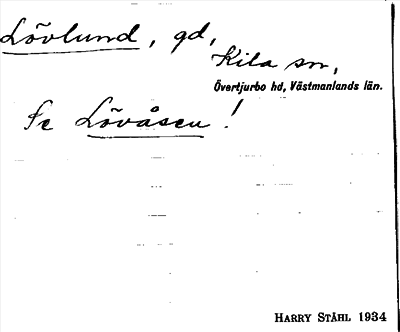 Lövlund, gd,
Kila sn,
Övertjurbo hd, Västmanlands län.
Se Lövåsen!
HARRY STÅHL 1934